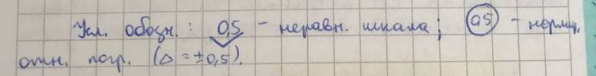 Усл. обозн.: 0,5 - неравн. шкала; 0,5 - нормир.
отн. погр. (Δ = ±0,5).